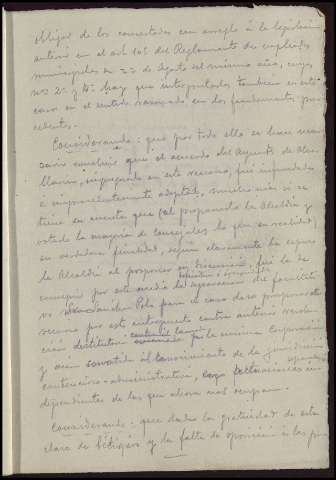 obligar de los concertados con arreglo á la legislación
anterior en el art. 101 del Reglamento de empleados
municipales de 23 de Agosto del mismo año, cuyos
nos 2º y 4º hay que interpretarlos tambien en este
caso en el sentido razonado en los fundamentos pre-
cedentes.
Considerando: que por todo ello es bien nece-
sario concluir que el acuerdo del Ayunto de
impugnado en este recurso, fué infundado
é improcedentemente adoptado, mucho más si se
tiene en cuenta que (al proponerlo la Alcaldía y
votado la mayoría de Concejales lo fué en realidad)
su verdadera finalidad, según claramente lo expuso
la Alcaldía al proponer su, fué la de
conseguir por este medio la separación del faculta-
vo Sanchis Pola para el caso de que prosperara el
recurso por este interpuesto contra anterior resolu-
ción destitutoria por la misma Corporación
y aun sometida al conocimiento de la jurisdicción
contencioso-administrativa, cuyo in-
dependientes de los que ahora nos ocupan.
Considerando: que dada la gratuidad de esta
clase de litigios y la falta de oposición á las